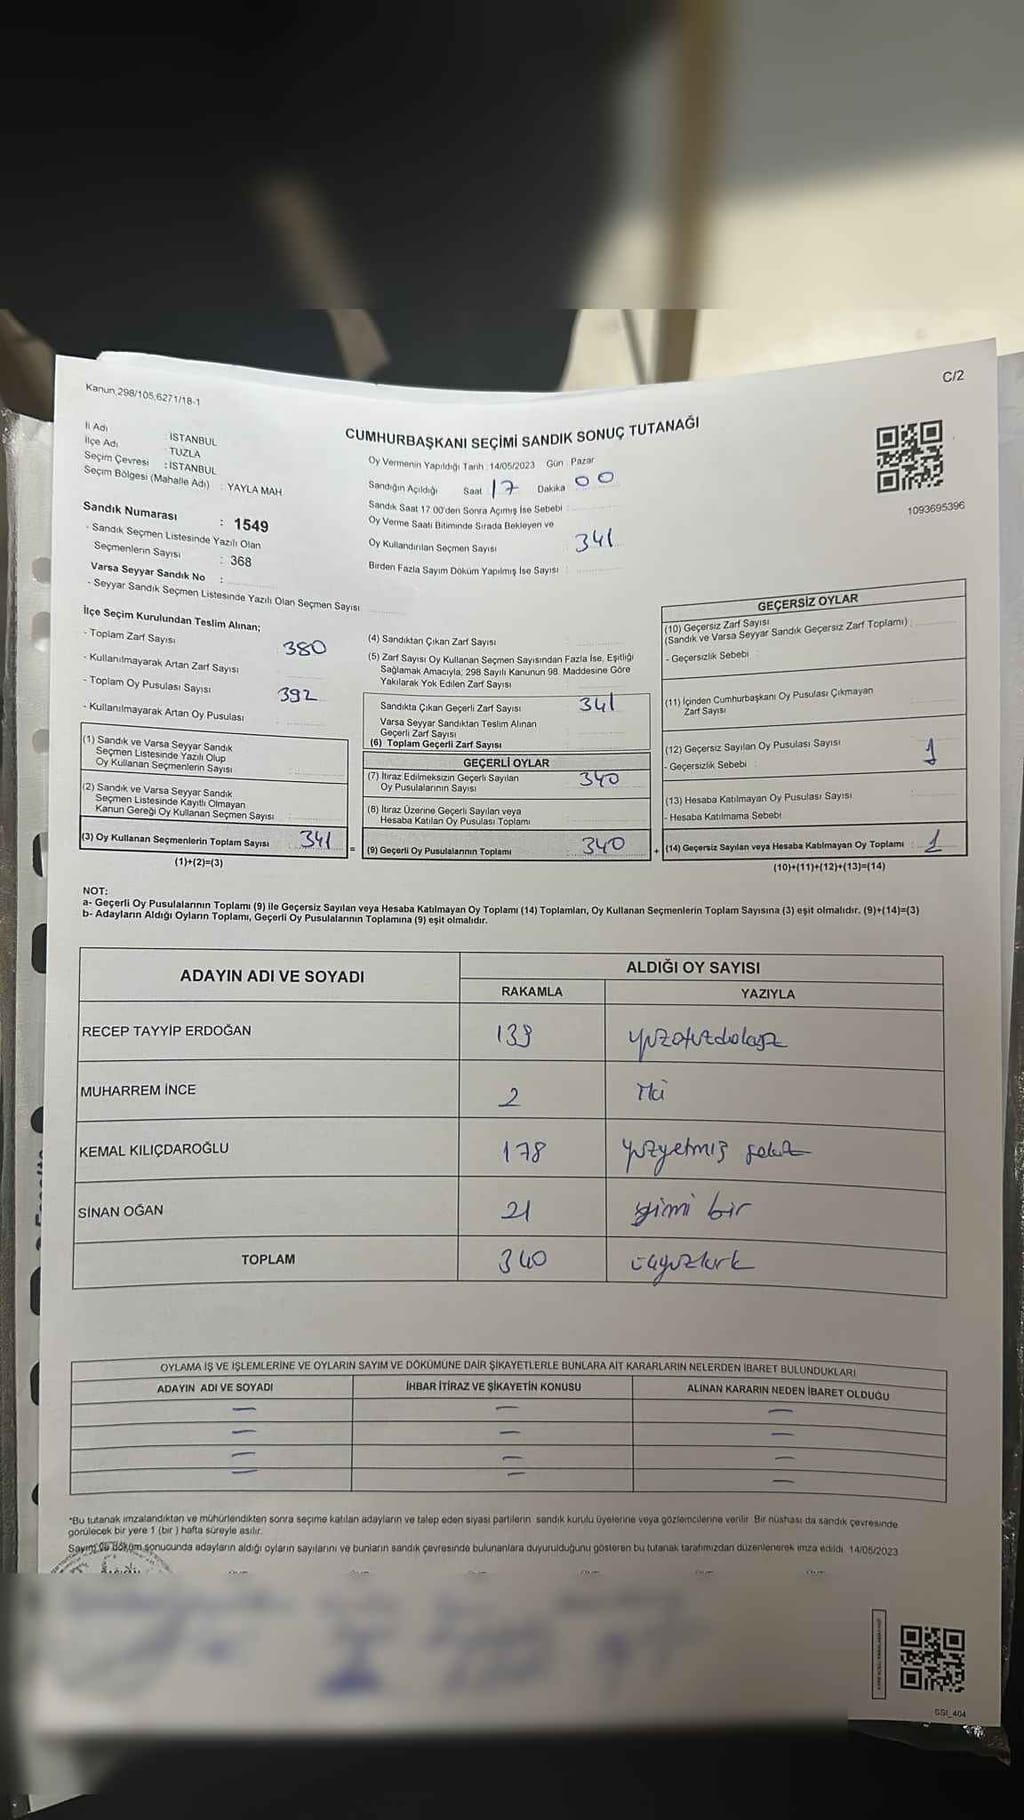 Kanun,298/105,6271/18-1
C/2
İl Adı : İSTANBUL
İlçe Adı : TUZLA
Seçim Çevresi : İSTANBUL
Seçim Bölgesi (Mahalle Adı) : YAYLA MAH
Sandık Numarası : 1549
- Sandık Seçmen Listesinde Yazılı Olan
Seçmenlerin Sayısı : 368
Varsa Seyyar Sandık No :
- Seyyar Sandık Seçmen Listesinde Yazılı Olan Seçmen Sayısı
CUMHURBAŞKANI SEÇİMİ SANDIK SONUÇ TUTANAĞI
Oy Vermenin Yapıldığı Tarih : 14/05/2023 Gün : Pazar
Sandığın Açıldığı Saat 17 Dakika 00
Sandık Saat 17 00'den Sonra Açımış İse Sebebi :
Oy Verme Saati Bitiminde Sırada Bekleyen ve
Oy Kullandırılan Seçmen Sayısı 341
Birden Fazla Sayım Döküm Yapılmış İse Sayısı :
1093695396
İlçe Seçim Kurulundan Teslim Alınan;
- Toplam Zarf Sayısı 380
- Kullanılmayarak Artan Zarf Sayısı
- Toplam Oy Pusulası Sayısı 392
- Kullanılmayarak Artan Oy Pusulası
(1) Sandık ve Varsa Seyyar Sandık
Seçmen Listesinde Yazılı Olup
Oy Kullanan Seçmenlerin Sayısı
(2) Sandık ve Varsa Seyyar Sandık
Seçmen Listesinde Kayıtlı Olmayan
Kanun Gereği Oy Kullanan Seçmen Sayısı
(3) Oy Kullanan Seçmenlerin Toplam Sayısı 341 =
(1)+(2)=(3)
(4) Sandıktan Çıkan Zarf Sayısı
(5) Zarf Sayısı Oy Kullanan Seçmen Sayısından Fazla İse, Eşitliği
Sağlamak Amacıyla, 298 Sayılı Kanunun 98. Maddesine Göre
Yakılarak Yok Edilen Zarf Sayısı
Sandıkta Çıkan Geçerli Zarf Sayısı 341
Varsa Seyyar Sandıktan Teslim Alınan
Geçerli Zarf Sayısı
(6) Toplam Geçerli Zarf Sayısı
GEÇERLİ OYLAR
(7) İtiraz Edilmeksizin Geçerli Sayılan
Oy Pusulalarının Sayısı 340
(8) İtiraz Üzerine Geçerli Sayılan veya
Hesaba Katılan Oy Pusulası Toplamı
(9) Geçerli Oy Pusulalarının Toplamı 340 +
GEÇERSİZ OYLAR
(10) Geçersiz Zarf Sayısı
(Sandık ve Varsa Seyyar Sandık Geçersiz Zarf Toplamı) :
- Geçersizlik Sebebi :
(11) İçinden Cumhurbaşkanı Oy Pusulası Çıkmayan
Zarf Sayısı
(12) Geçersiz Sayılan Oy Pusulası Sayısı 1
- Geçersizlik Sebebi :
(13) Hesaba Katılmayan Oy Pusulası Sayısı
- Hesaba Katılmama Sebebi :
(14) Geçersiz Sayılan veya Hesaba Katılmayan Oy Toplamı : 1
(10)+(11)+(12)+(13)=(14)
NOT:
a- Geçerli Oy Pusulalarının Toplamı (9) ile Geçersiz Sayılan veya Hesaba Katılmayan Oy Toplamı (14) Toplamları, Oy Kullanan Seçmenlerin Toplam Sayısına (3) eşit olmalıdır. (9)+(14)=(3)
b- Adayların Aldığı Oyların Toplamı, Geçerli Oy Pusulalarının Toplamına (9) eşit olmalıdır.
ADAYIN ADI VE SOYADI ALDIĞI OY SAYISI
RAKAMLA YAZIYLA
RECEP TAYYİP ERDOĞAN 139 yüzotuzdokuz
MUHARREM İNCE 2 iki
KEMAL KILIÇDAROĞLU 178 yüzyetmiş sekiz
SİNAN OĞAN 21 yirmi bir
TOPLAM 340 üçyüzkırk
OYLAMA İŞ VE İŞLEMLERİNE VE OYLARIN SAYIM VE DÖKÜMÜNE DAİR ŞİKAYETLERLE BUNLARA AİT KARARLARIN NELERDEN İBARET BULUNDUKLARI
ADAYIN ADI VE SOYADI İHBAR İTİRAZ VE ŞİKAYETİN KONUSU ALINAN KARARIN NEDEN İBARET OLDUĞU
— — —
— — —
— — —
— — —
*Bu tutanak imzalandıktan ve mühürlendikten sonra seçime katılan adayların ve talep eden siyasi partilerin sandık kurulu üyelerine veya gözlemcilerine verilir. Bir nüshası da sandık çevresinde
görülecek bir yere 1 (bir ) hafta süreyle asılır.
Sayım ve döküm sonucunda adayların aldığı oyların sayılarını ve bunların sandık çevresinde bulunanlara duyurulduğunu gösteren bu tutanak tarafımızdan düzenlenerek imza edildi. 14/05/2023
SSI_404